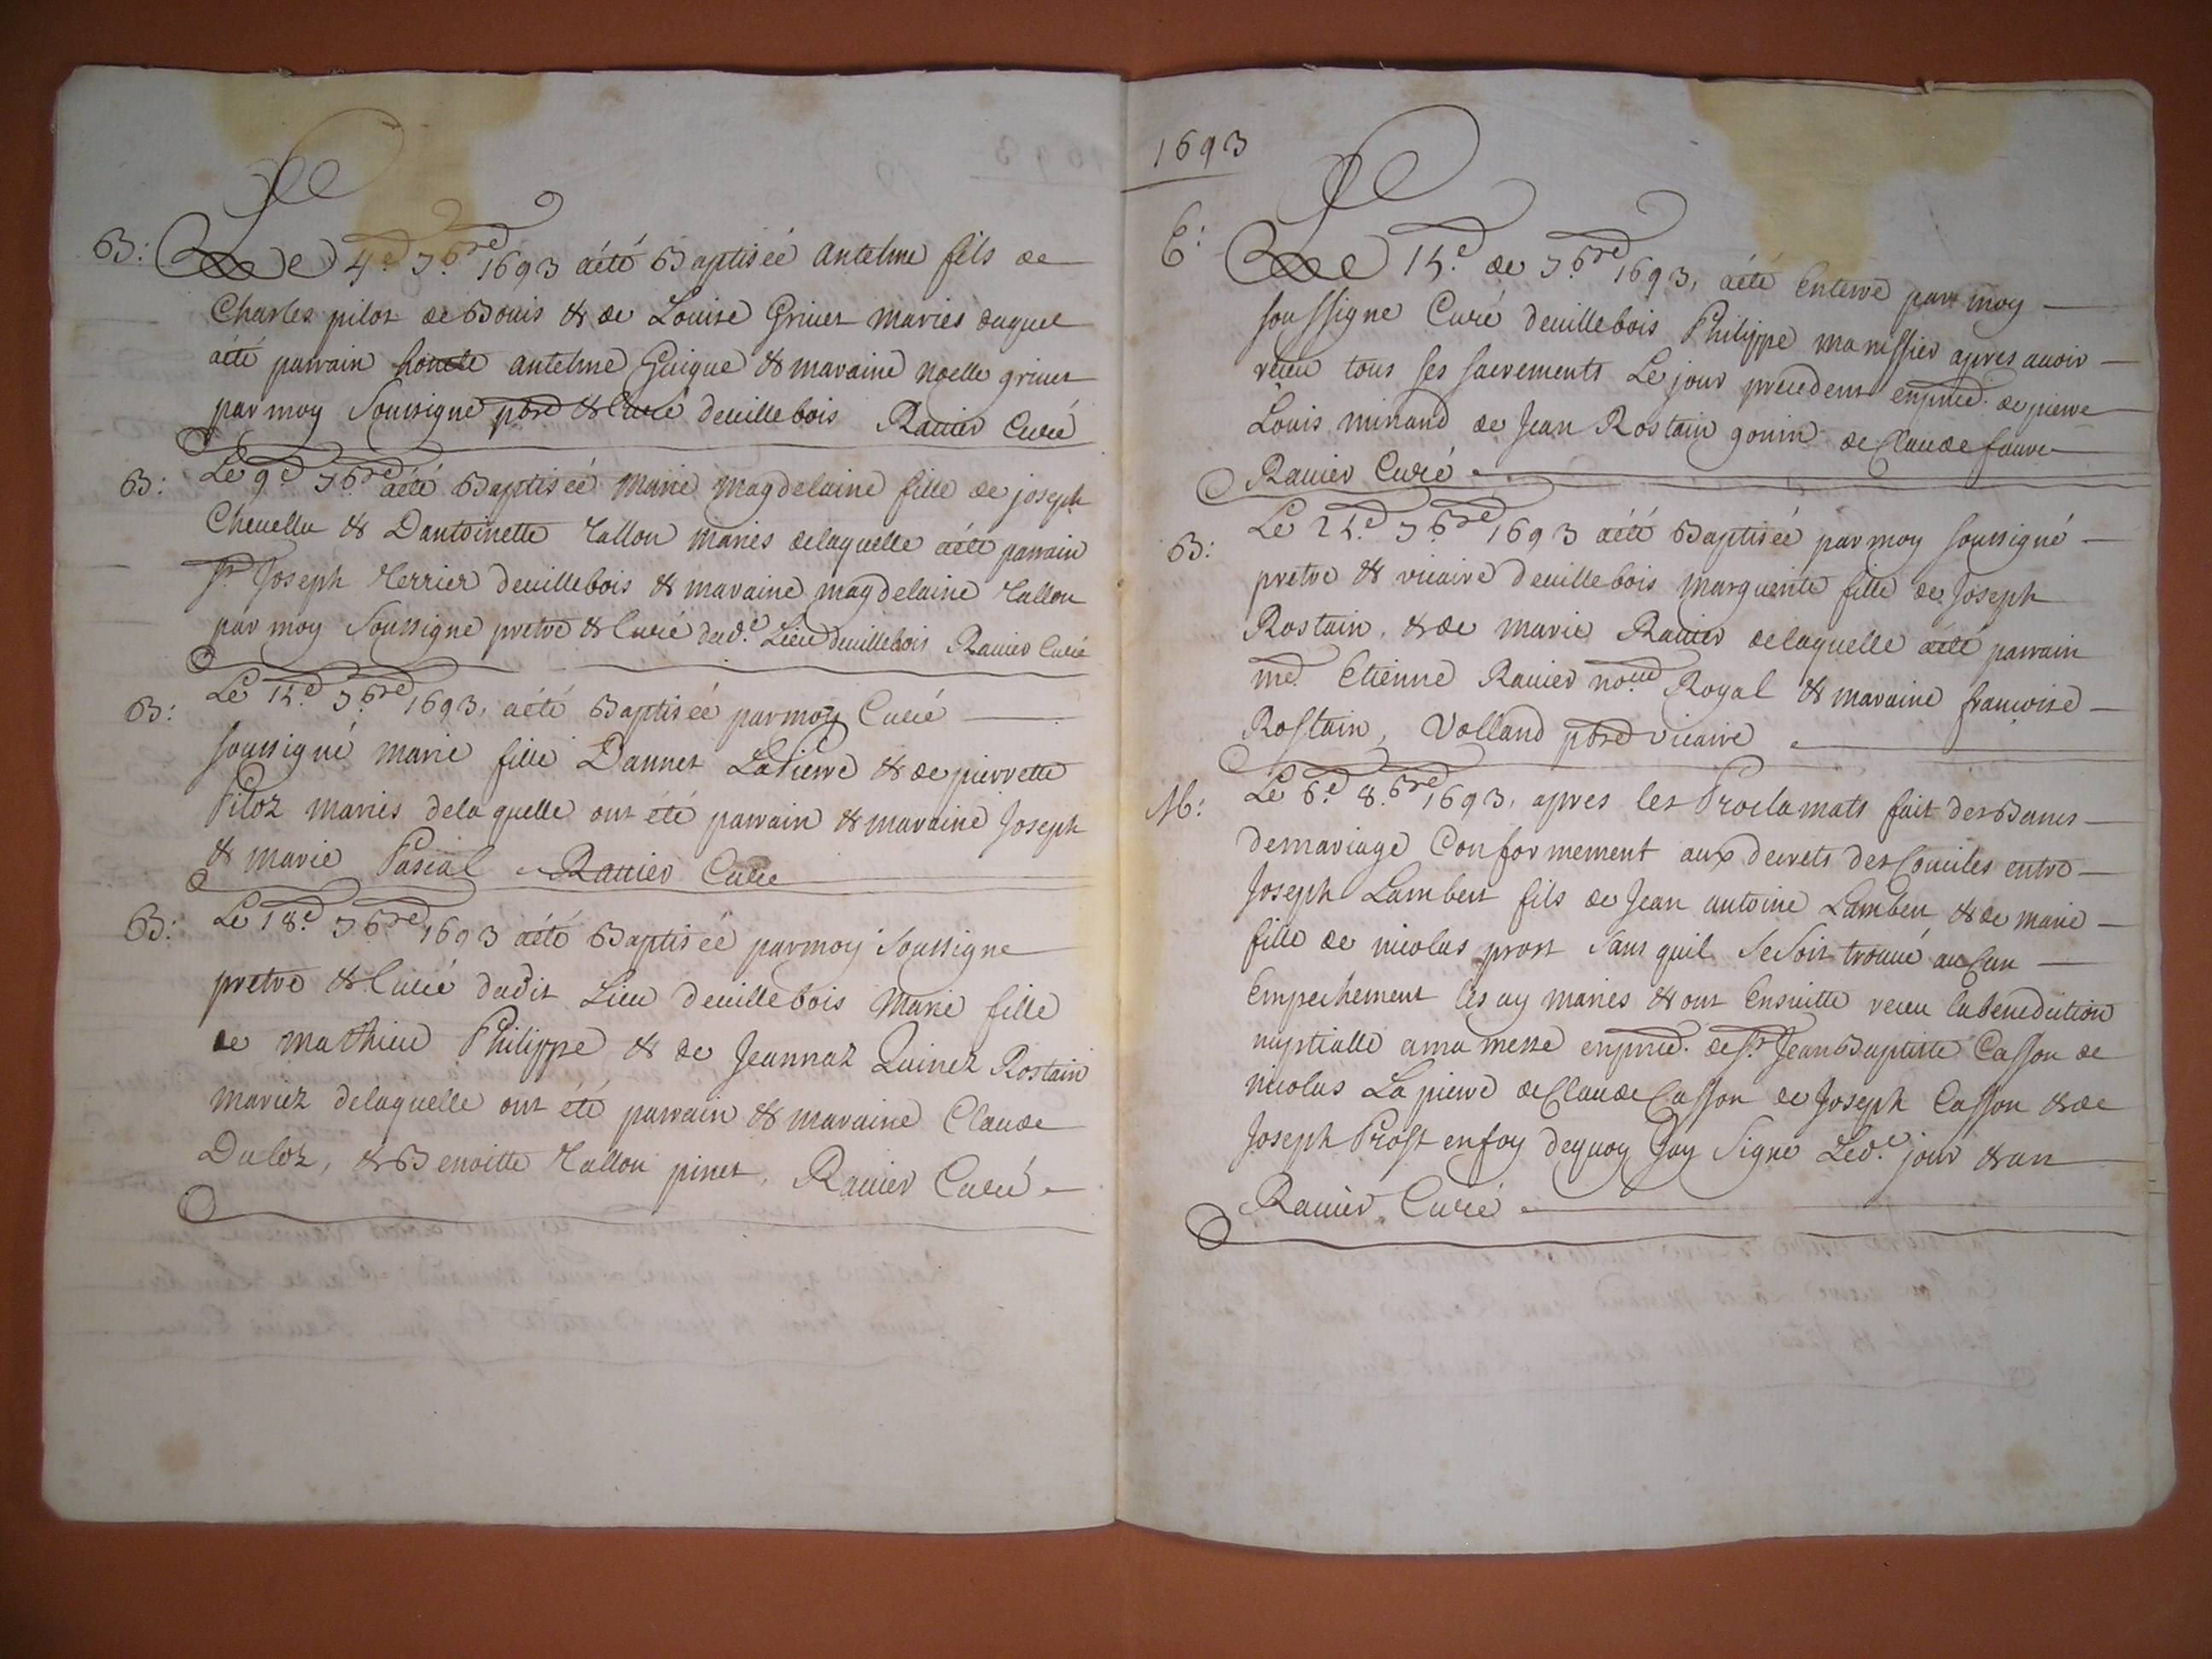 B: Le 4.e 7.bre 1693 aété Baptisée antelme fils de
Charles pilot de Bouis & de Louise Griuet mariés duquel
aété parrain honete antelme Guigue & maraine noelle griuet
par moy Soussigne pbre & Curé deuillebois Rauier Curé
B: Le 9.e 7.bre aété Baptisée Marie magdelaine fille de joseph
Cheuellu & Dantoinette Tallon mariés delaquelle aété parrain
Sr Joseph Terrier deuillebois & maraine magdelaine Tallon
par moy Soussigne pretre & Curé dud.t Lieu deuillebois Rauier Curé
B: Le 15.e 7.bre 1693, aété Baptisée parmoy Curé
soussigné marie fille Dannet Lapierre & de pierrette
Piloz mariés delaquelle ont été parrain & maraine Joseph
& marie Pascal Rauier Curé
B: Le 18.e 7.bre 1693 aété Baptisée parmoy Soussigne
pretre & Curé dudit Lieu deuillebois Marie fille
de mathieu Philippe & de Jeannaz Quinez Rostain
mariez delaquelle ont été parrain & maraine Claude
Duloz, & Benoitte Tallon pinet, Rauier Curé
1693
E: Le 15.e de 7.bre 1693, aété Enterré par moy
soussigne Curé deuillebois Philippe manissier apres auoir
receu tous ses sacrements Le jour precedent enpnce. de pierre
Louis minand de Jean Rostain gonin de Claude faure
Rauier Curé
B: Le 25.e 7.bre 1693 aété Baptisée par moy soussigné
pretre & vicaire deuillebois marguerite fille de Joseph
Rostain, & de marie Rauier delaquelle aété parrain
me. Etienne Rauier no.re Royal & maraine francoise
Rostain, Volland pbre vicaire
M: Le 6.e 8.bre 1693, apres les Proclamats fait des Banns
demariage Conformement aux decrets des Conciles entre
Joseph Lambert fils de Jean antoine Lambert, & de marie
fille de nicolas prost Sans quil Se Soit trouué auCun
Empechement les ay mariés & ont Ensuitte receu labenediction
nuptialle ama messe enpnce. de Sr Jean Baptiste Casson de
nicolas Lapierre de Claude Casson de Joseph Casson & de
Joseph Prost enfoy dequoy Jay Signé Led.t jour & an
Rauier Curé